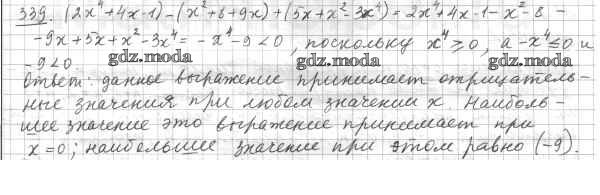 339. (2x⁴+4x-1)-(x²+8+9x)+(5x+x²-3x⁴)=2x⁴+4x-1-x²-8-
-9x+5x+x²-3x⁴=-x⁴-9<0, поскольку x⁴≥0, а -x⁴≤0 и
-9<0.
gdz.moda gdz.moda gdz.moda
Ответ: данное выражение принимает отрицатель-
ные значения при любом значении x. Наиболь-
шее значение это выражение принимает при
x=0; наибольшее значение при этом равно (-9).
gdz.moda gdz.moda